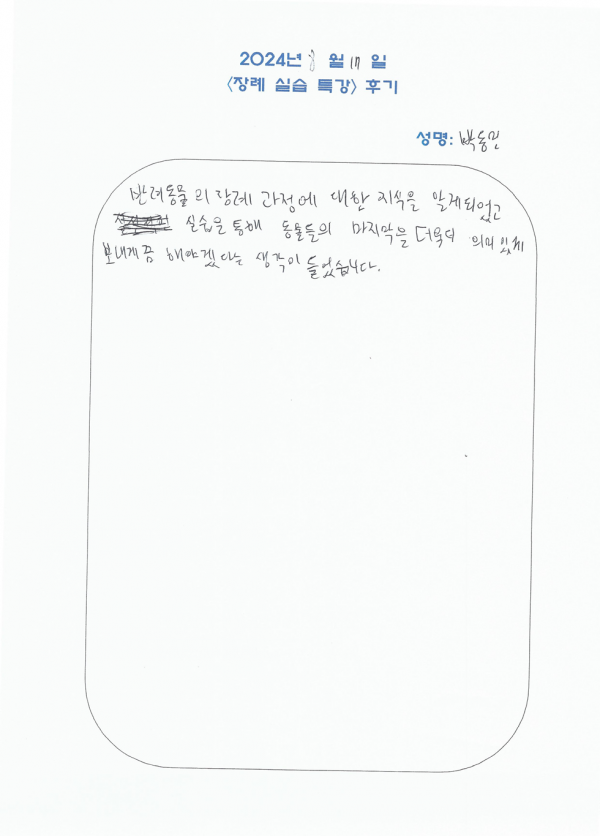 2024년 8월 17일
<장례 실습 특강> 후기
성명: 박동민
반려동물의 장례 과정에 대한 지식을 알게되었고
실습을 통해 동물들의 마지막을 더욱더 의미있게
보내게끔 해야겠다는 생각이 들었습니다.